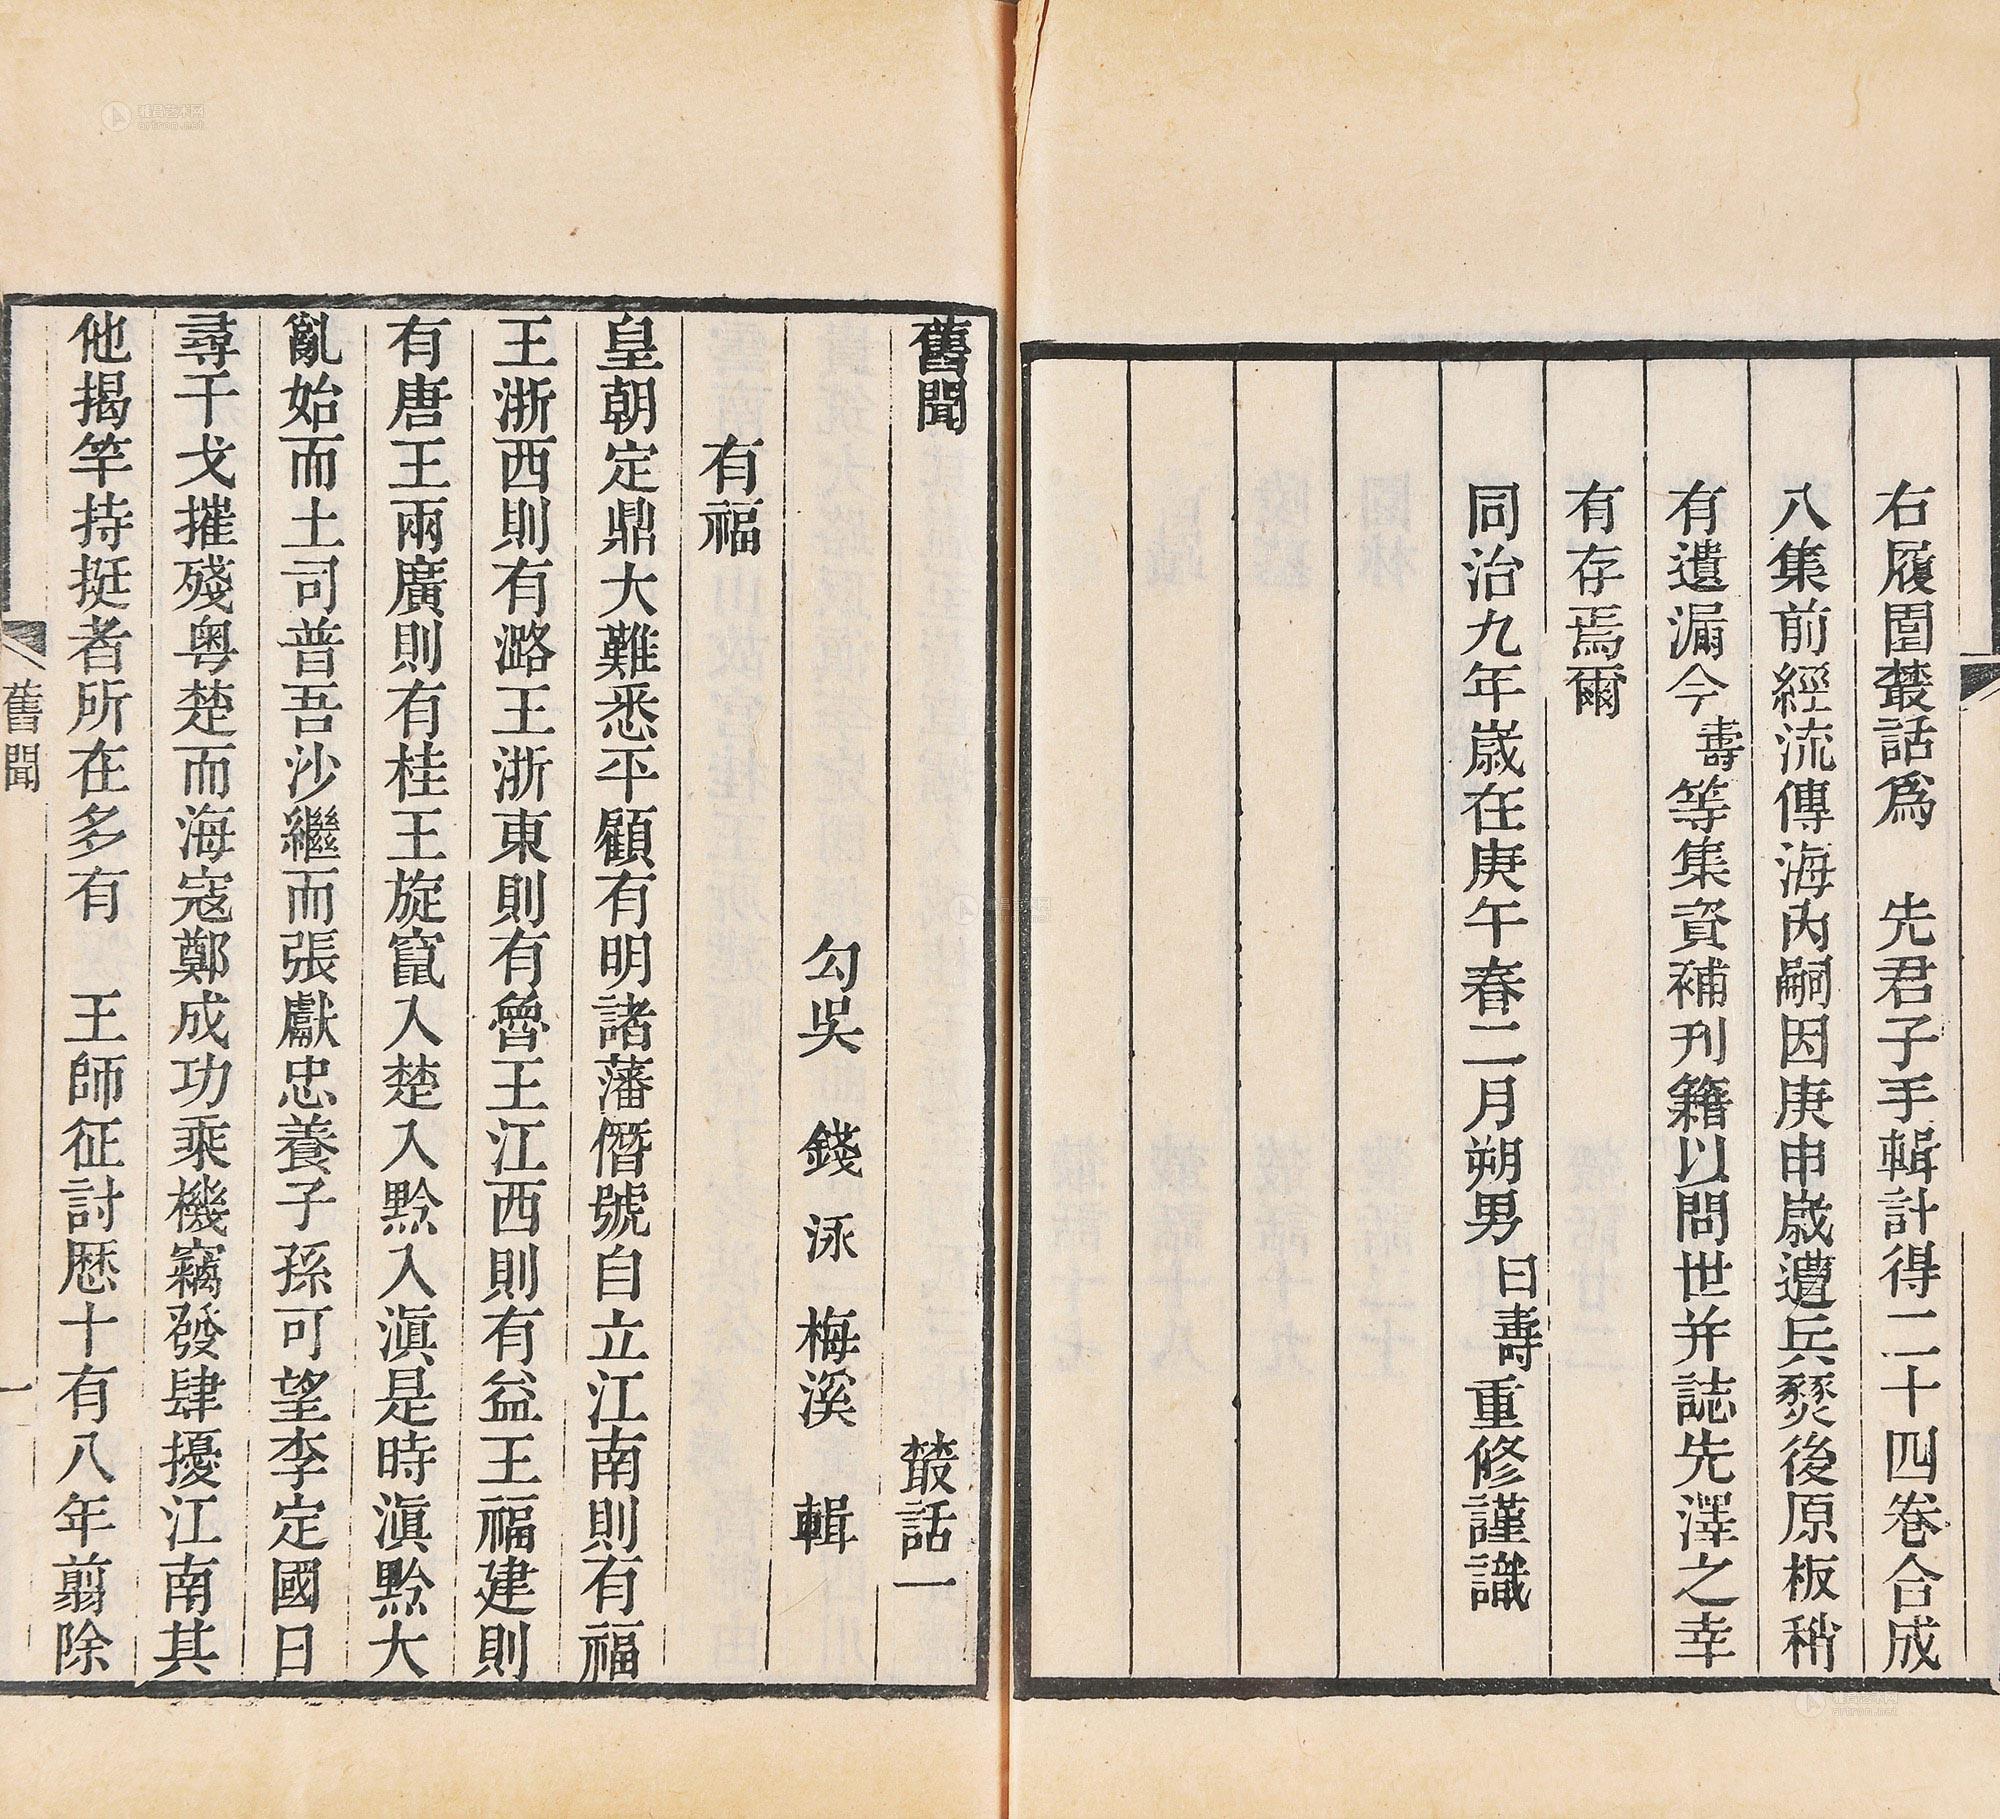 右履園叢話爲　先君子手輯計得二十四卷合成
八集前經流傳海內嗣因庚申歲遭兵燹後原板稍
有遺漏今壽等集資補刊籍以問世并誌先澤之幸
有存焉爾
同治九年歲在庚午春二月朔男曰壽重修謹識
舊聞　叢話一
勾吳　錢　泳　梅溪　輯
有福
皇朝定鼎大難悉平顧有明諸藩僭號自立江南則有福
王浙西則有潞王浙東則有魯王江西則有益王福建則
有唐王兩廣則有桂王旋竄入楚入黔入滇是時滇黔大
亂始而土司普吾沙繼而張獻忠養子孫可望李定國日
尋干戈摧殘粤楚而海寇鄭成功乘機竊發肆擾江南其
他揭竿持挺者所在多有　王師征討歷十有八年翦除
舊聞
一
雅昌艺术网
artron.net